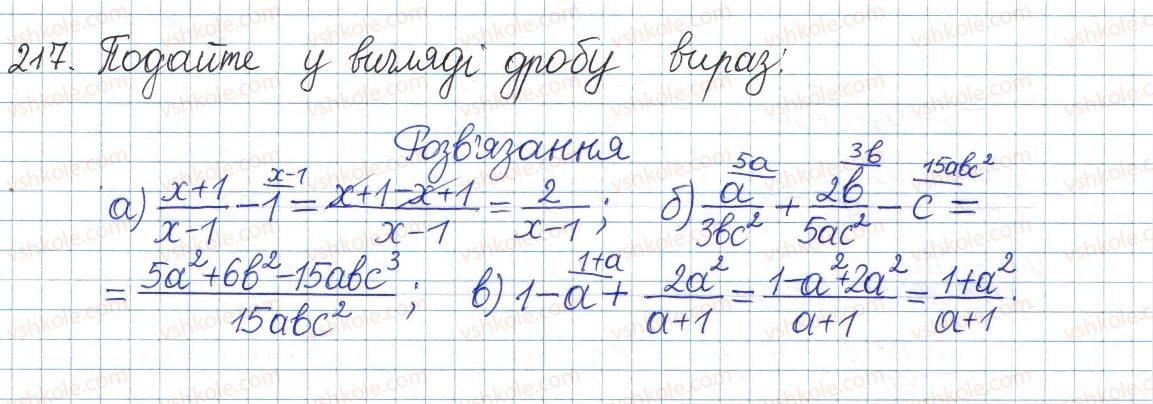 217. Подайте у вигляді дробу вираз:
Розв'язання
а) \frac{x+1}{x-1} - 1^{x-1} = \frac{x+1-x+1}{x-1} = \frac{2}{x-1}; б) \frac{a^{5a}}{3bc^2} + \frac{2b^{3b}}{5ac^2} - c^{15abc^2} =
= \frac{5a^2+6b^2-15abc^3}{15abc^2}; в) 1-a^{1+a} + \frac{2a^2}{a+1} = \frac{1-a^2+2a^2}{a+1} = \frac{1+a^2}{a+1}.
vshkole.com